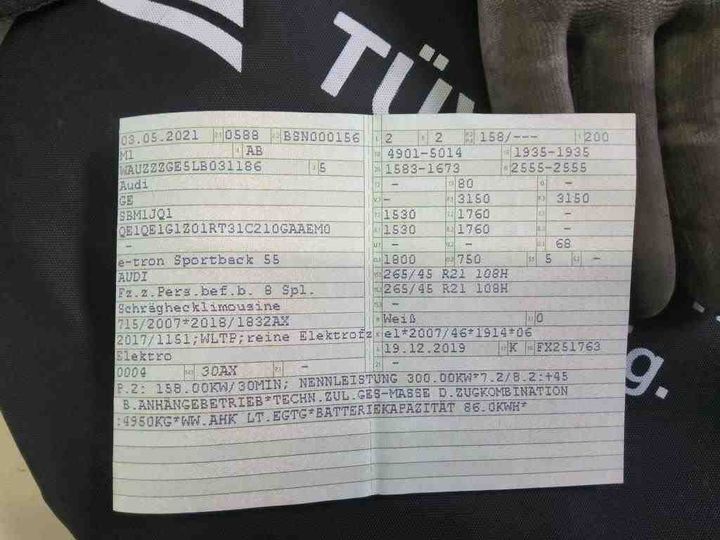 TÜV
03.05.2021 0588 BSN000156
M1 AB
WAUZZZGE5LB031186 5
Audi
GE
SBM1JQ1
QE1QE1G1Z01RT31C210GAAEM0
-
e-tron Sportback 55
AUDI
Fz.z.Pers.bef.b. 8 Spl.
Schräghecklimousine
715/2007*2018/1832AX
2017/1151;WLTP;reine Elektrofz
Elektro
0004 30AX -
2 2 158/--- 200
4901-5014 1935-1935
1583-1673 2555-2555
- 80 -
- 3150 3150
1530 1760 -
1530 1760 -
- - 68
1800 750 5 -
265/45 R21 108H
265/45 R21 108H
-
Weiß 0
e1*2007/46*1914*06
19.12.2019 K FX251763
-
P.2: 158.00KW/30MIN; NENNLEISTUNG 300.00KW*7.2/8.2:+45
B.ANHÄNGEBETRIEB*TECHN.ZUL.GES-MASSE D.ZUGKOMBINATION
:4950KG*WW.AHK LT.EGTG*BATTERIEKAPAZITÄT 86.0KWH*
g.